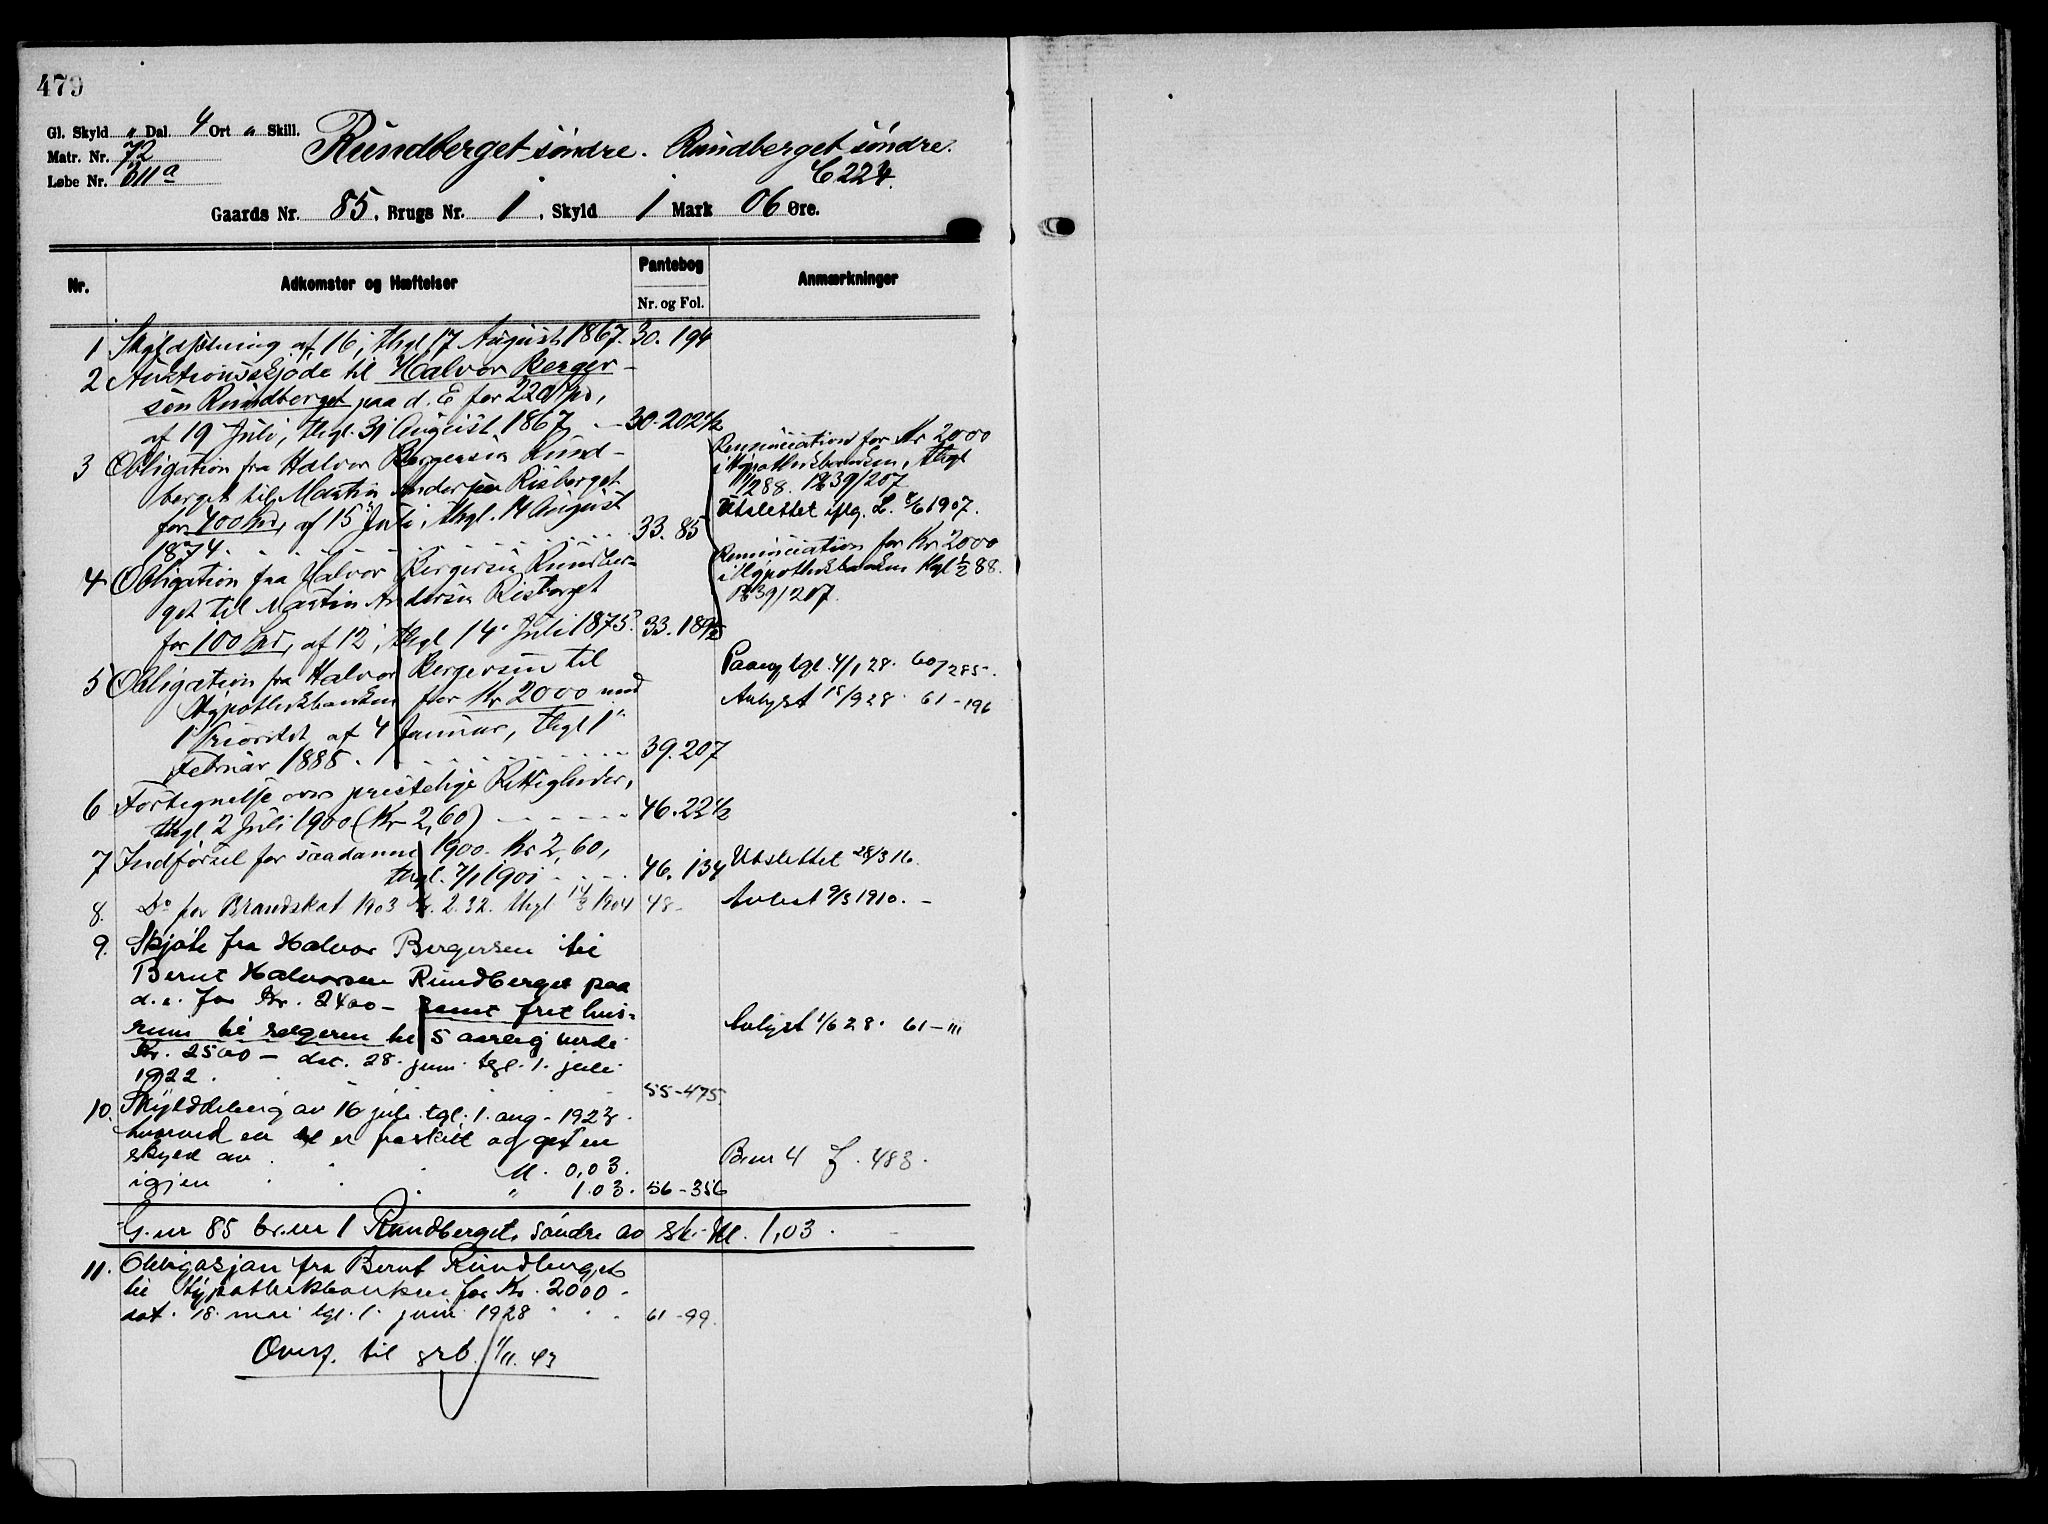 479
Gl. Skyld " Dal. 4 Ort " Skill.
Matr. Nr. 72
Løbe Nr. 311a
Rundberget søndre. Rundberget søndre.
C 224.
Gaards Nr. 85, Brugs Nr. 1, Skyld 1 Mark 06 Øre.
Nr. Adkomster og Hæftelser Pantebog Anmærkninger
Nr. og Fol.
1 Skyldsætning af 16, thgl 17 August 1867. 30. 194
2 Auktionsskjøde til Halvor Berger-
sen Rundberget paa d. E for 220 Spd,
af 19 Juli, thgl. 31 August 1867 30-202
3 Obligation fra Halvor Bergersen Rund-
berget til Martin Andersen Risberget
for 400 Spd, af 15 Juli, thgl. 14 August
1874. 33. 85
Renunciation for Kr 2000
i Hypothekbanken, thgl
1/2 88. Pb 39/207
Utslettet iflg. L. 1907.
4 Obligation fra Halvor Bergersen Rundber-
get til Martin Andersen Risberget
for 100 Spd, af 12, thgl 14 Juli 1875. 33. 189
Renunciation for Kr 2000
i Hypothekbanken thgl 1/2 88.
Pb 39/207.
5 Obligation fra Halvor Bergersen til
Hypothekbanken for Kr 2000 med
1 Prioritet af 4 Januar, thgl 1
Februar 1888. 39. 207
tgl. 4/1 28. 60/285.
Avlyst 15/9 28. 61-196
6 Fortegnelse over prestelige Rettigheder,
thgl 2 Juli 1900 (Kr 2,60) 46. 22
7 Indførsel for saadanne 1900. Kr 2,60,
thgl. 7/1 1901 46. 134 Utslettet 28/3 16.
8. Do for Brandskat 1903 Kr. 2.32. thgl 14/3 1904 48- Avlest 9/3 1910. -
9. Skjøte fra Halvor Bergersen til
Bernt Halvorsen Rundberget paa
d. e. for Kr. 2400 - samt frit hus-
rum til selgeren til 5 aarlig verdi
Kr. 2500 - dat. 28. juni tgl. 1. juli
1922. 55-475.
Avlyst 1/6 28. 61-111
10. Skylddeling av 16 juli tgl. 1. aug. 1923.
hvorved en er fraskilt og git en
skyld av M. 0,03. B.nr 4 f. 483.
igjen " 1.03. 56-356
G.nr 85 br.nr 1 Rundberget søndre av sk. M. 1,03.
11. Obligasjon fra Bernt Rundberget
til Hypothekbanken for Kr. 2000
dat. 18. mai tgl. 1. juni 1928 61-99.
Overf. til grb. 1/11. 43